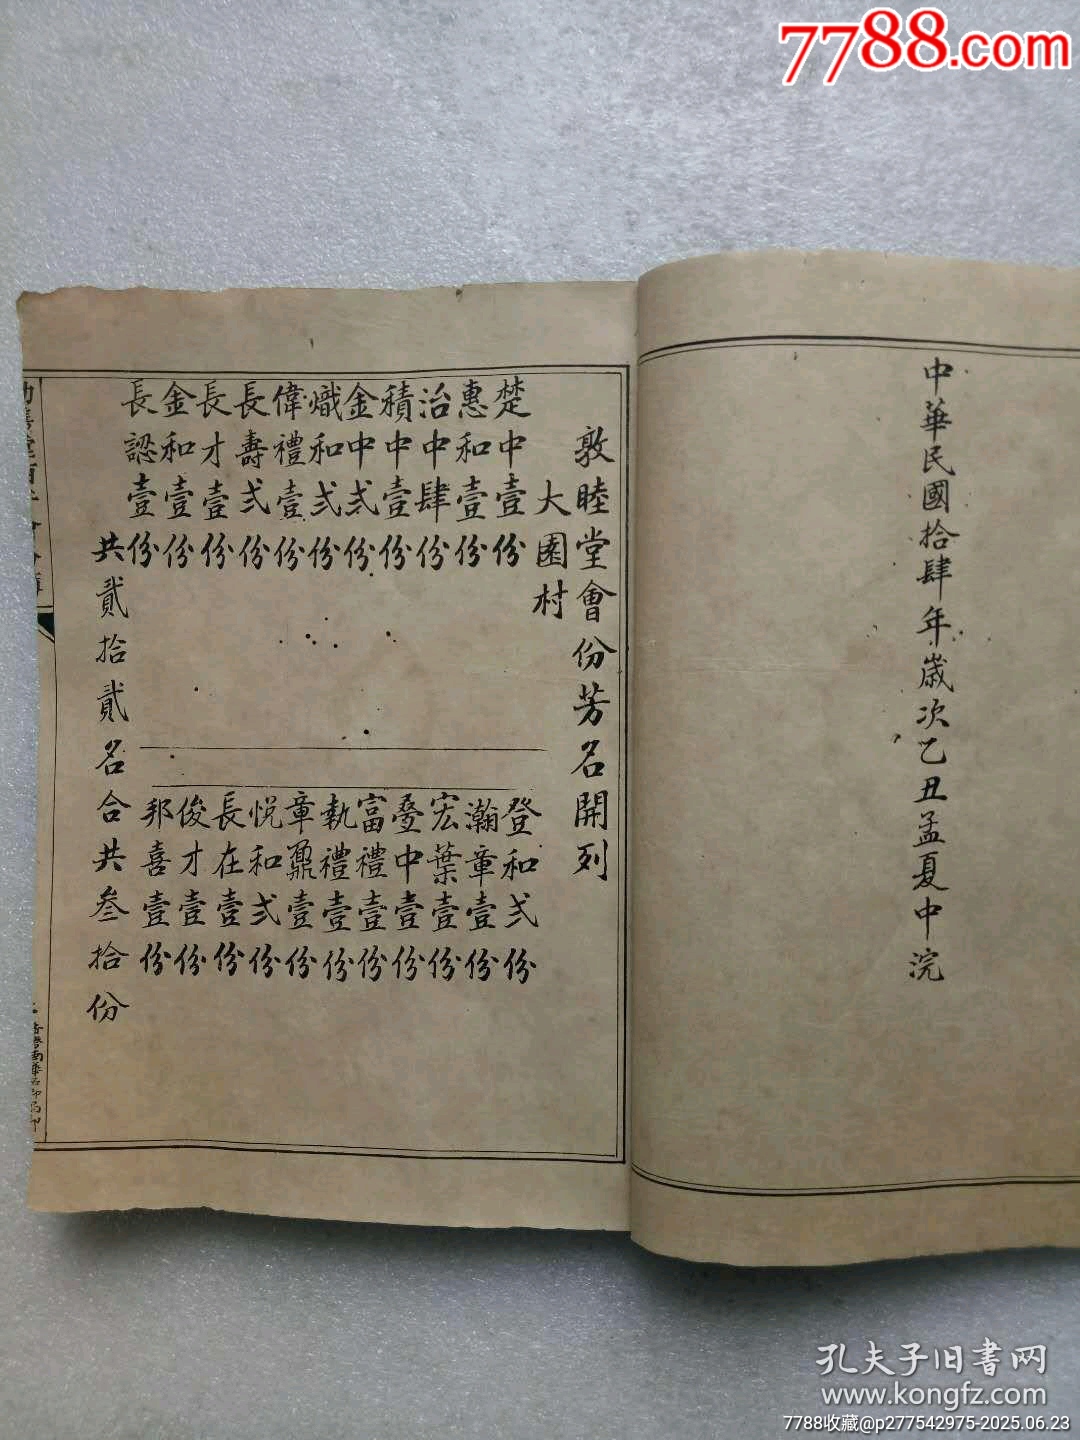 7788.com
中華民國拾肆年歲次乙丑孟夏中浣
敦睦堂會份芳名開列
大園村
楚中壹份
惠和壹份
治中肆份
積中壹份
金中弍份
熾和弍份
偉禮壹份
長壽弍份
長才壹份
金和壹份
長認壹份
登和弍份
瀚章壹份
宏葉壹份
疊中壹份
富禮壹份
執禮壹份
章鼐壹份
悦和弍份
長在壹份
俊才壹份
邦喜壹份
共貳拾貳名合共叁拾份
孔夫子旧書网
www.kongfz.com
7788收藏@p277542975-2025.06.23